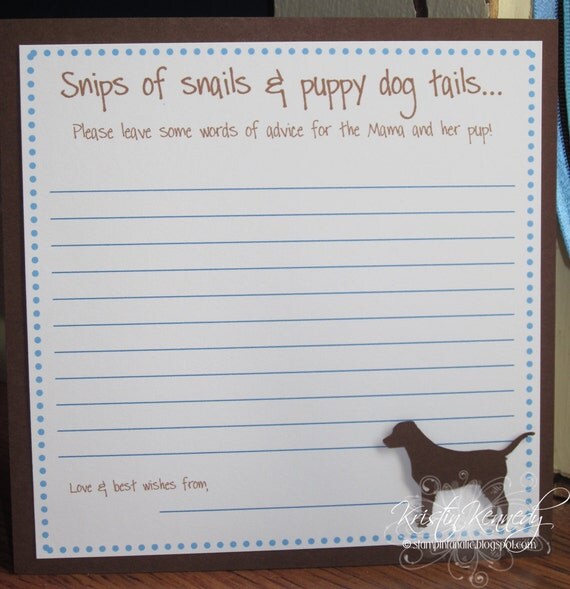 Snips of snails & puppy dog tails...
Please leave some words of advice for the Mama and her pup!
Love & best wishes from,
Kristin Kennedy
© stampintandlic.blogspot.com